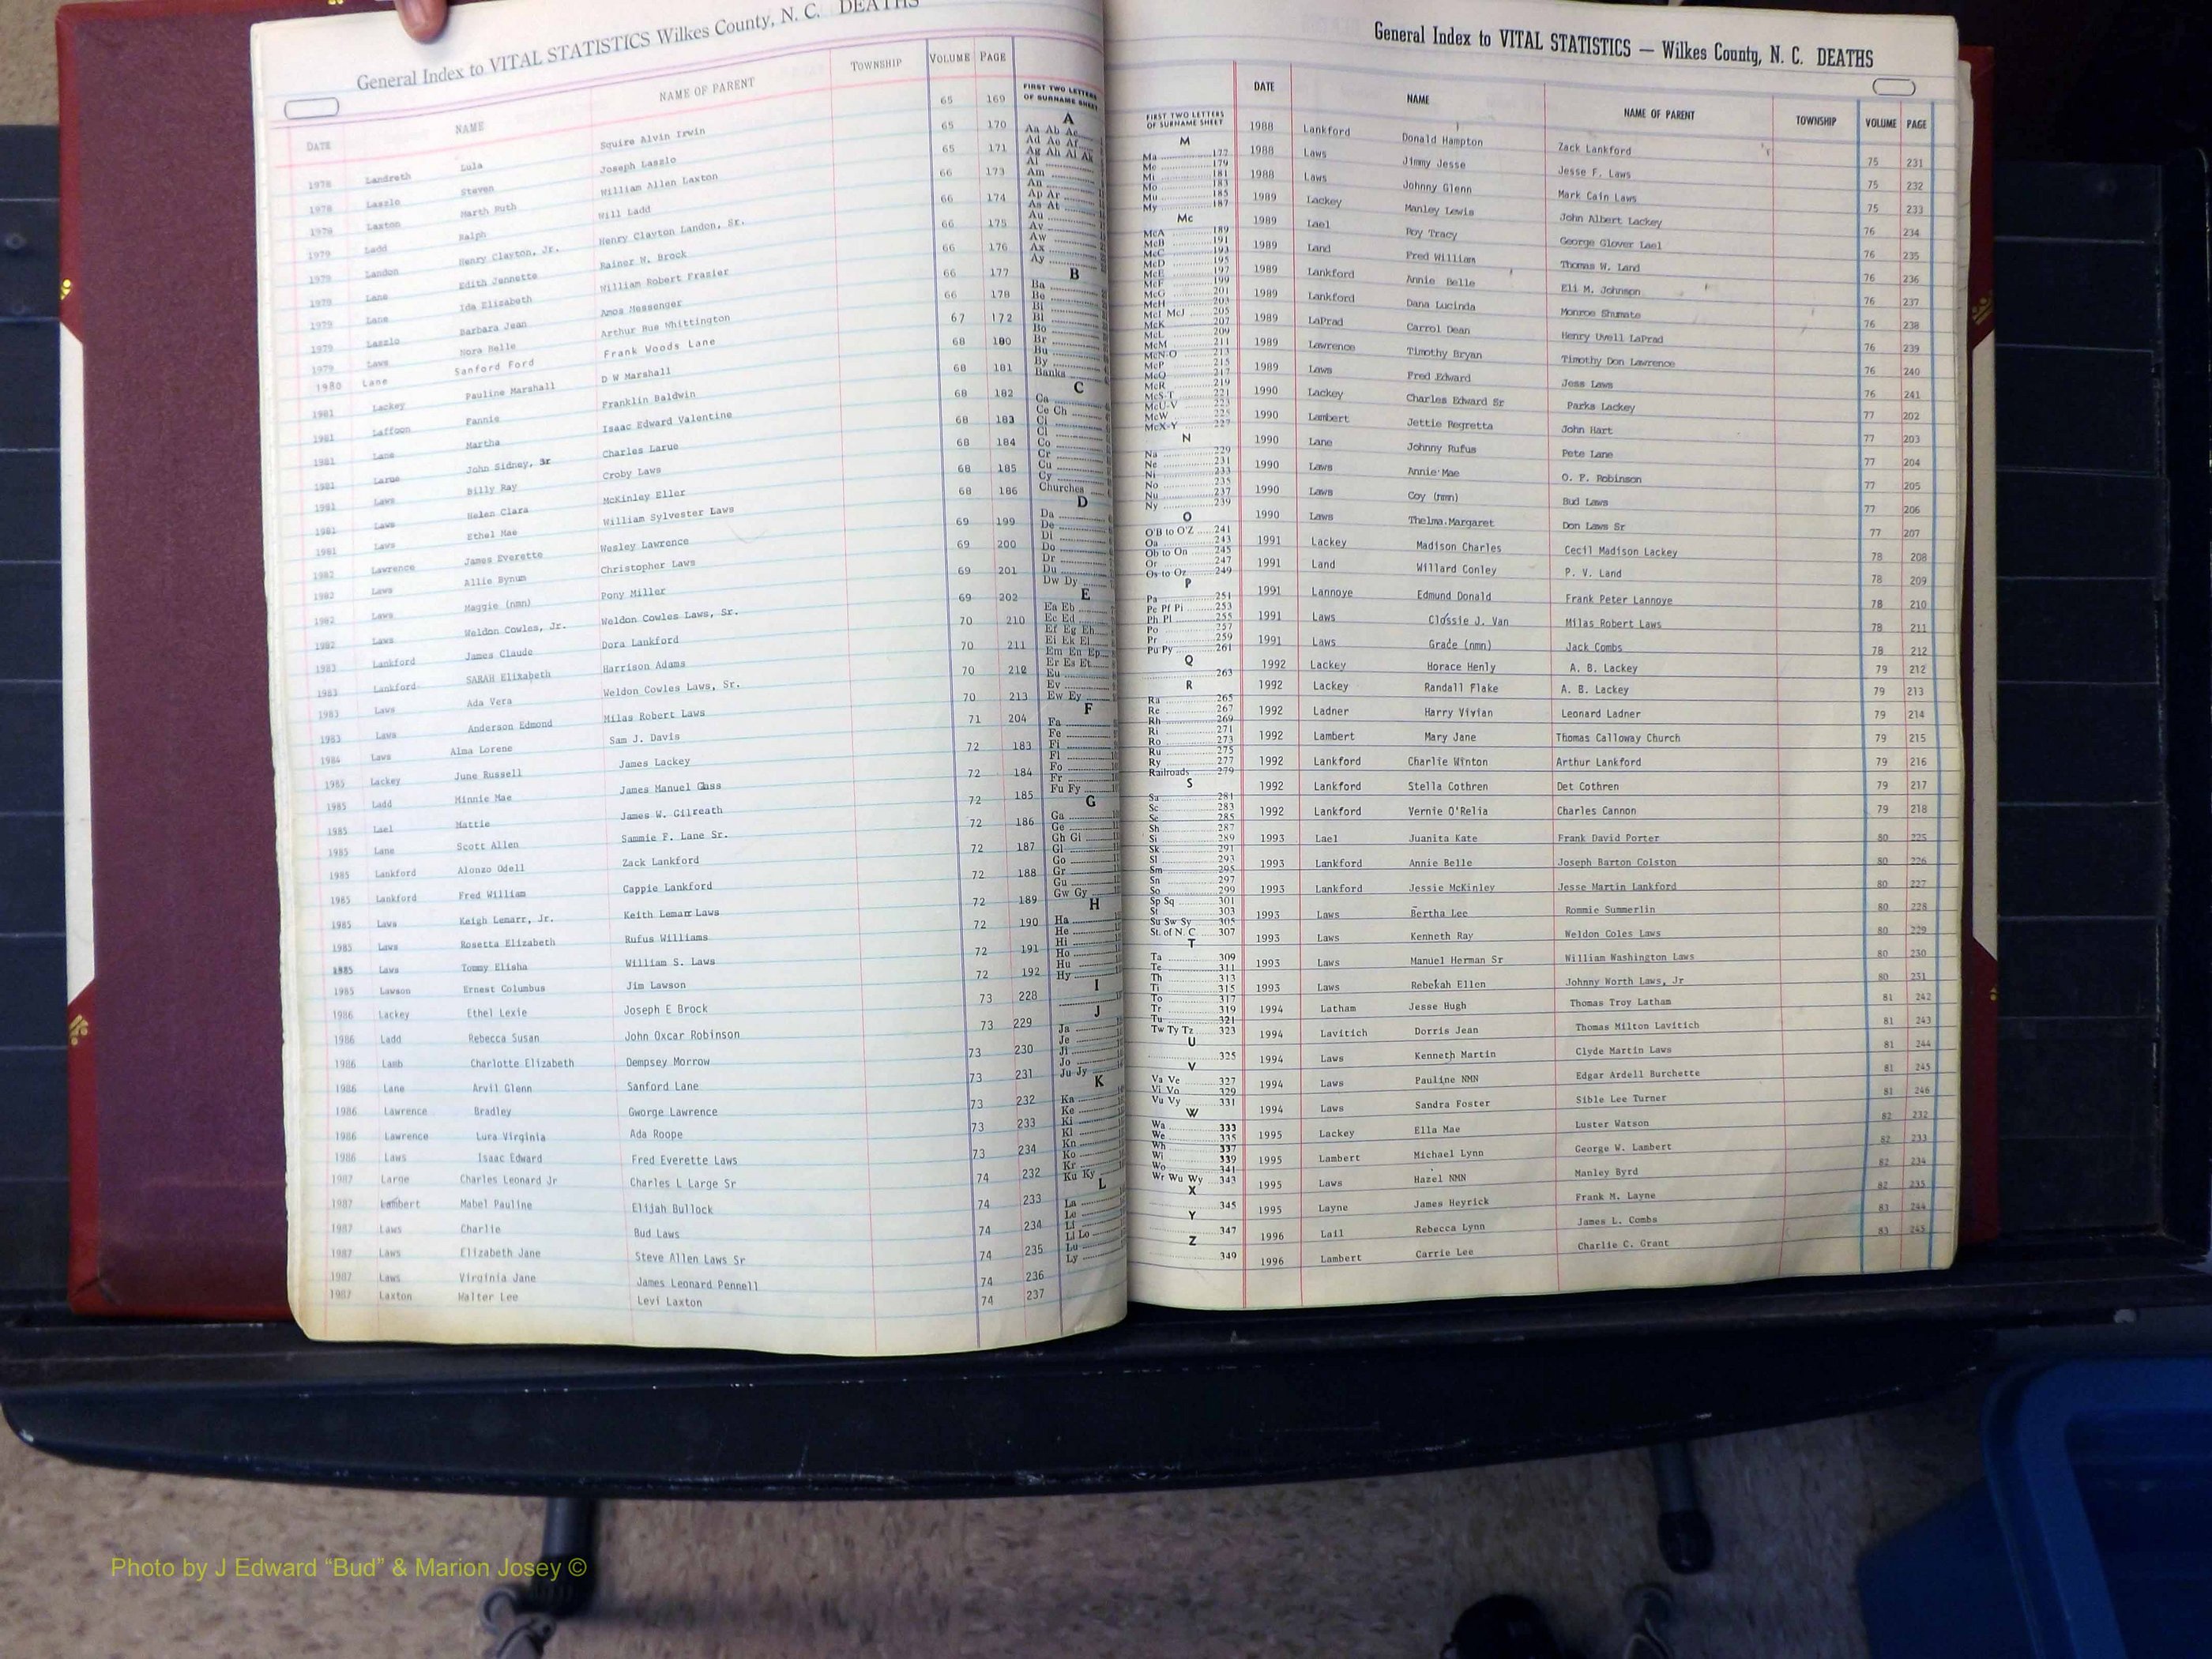 General Index to VITAL STATISTICS Wilkes County, N. C. DEATHS
DATE NAME NAME OF PARENT TOWNSHIP VOLUME PAGE
1978 Landreth Lula Squire Alvin Irwin 65 169
1978 Laszlo Steven Joseph Laszlo 65 170
1978 Laxton Marth Ruth William Allen Laxton 65 171
1979 Ladd Ralph Will Ladd 66 173
1979 Landon Henry Clayton, Jr. Henry Clayton Landon, Sr. 66 174
1979 Lane Edith Jennette Rainer W. Brock 66 175
1979 Lane Ida Elizabeth William Robert Frazier 66 176
1979 Laszlo Barbara Jean Amos Messenger 66 177
1979 Laws Nora Belle Arthur Rue Whittington 66 178
1980 Lane Sanford Ford Frank Woods Lane 67 172
1981 Lackey Pauline Marshall D W Marshall 68 180
1981 Laffoon Fannie Franklin Baldwin 68 181
1981 Lane Martha Isaac Edward Valentine 68 182
1981 Larue John Sidney, Sr Charles Larue 68 183
1981 Laws Billy Ray Croby Laws 68 184
1981 Laws Helen Clara McKinley Eller 68 185
1981 Laws Ethel Mae William Sylvester Laws 68 186
1982 Lawrence James Everette Wesley Lawrence 69 199
1982 Laws Allie Bynum Christopher Laws 69 200
1982 Laws Maggie (nmn) Pony Miller 69 201
1982 Laws Weldon Cowles, Jr. Weldon Cowles Laws, Sr. 69 202
1983 Lankford James Claude Dora Lankford 70 210
1983 Lankford SARAH Elizabeth Harrison Adams 70 211
1983 Laws Ada Vera Weldon Cowles Laws, Sr. 70 212
1983 Laws Anderson Edmond Milas Robert Laws 70 213
1984 Laws Alma Lorene Sam J. Davis 71 204
1985 Lackey June Russell James Lackey 72 183
1985 Ladd Minnie Mae James Manuel Gass 72 184
1985 Lael Mattie James W. Gilreath 72 185
1985 Lane Scott Allen Sammie F. Lane Sr. 72 186
1985 Lankford Alonzo Odell Zack Lankford 72 187
1985 Lankford Fred William Cappie Lankford 72 188
1985 Laws Keigh Lemarr, Jr. Keith Lemarr Laws 72 189
1985 Laws Rosetta Elizabeth Rufus Williams 72 190
1985 Laws Tommy Elisha William S. Laws 72 191
1985 Lawson Ernest Columbus Jim Lawson 72 192
1986 Lackey Ethel Lexie Joseph E Brock 73 228
1986 Ladd Rebecca Susan John Oxcar Robinson 73 229
1986 Lamb Charlotte Elizabeth Dempsey Morrow 73 230
1986 Lane Arvil Glenn Sanford Lane 73 231
1986 Lawrence Bradley Gworge Lawrence 73 232
1986 Lawrence Lura Virginia Ada Roope 73 233
1986 Laws Isaac Edward Fred Everette Laws 73 234
1987 Large Charles Leonard Jr Charles L Large Sr 74 232
1987 Lambert Mabel Pauline Elijah Bullock 74 233
1987 Laws Charlie Bud Laws 74 234
1987 Laws Elizabeth Jane Steve Allen Laws Sr 74 235
1987 Laws Virginia Jane James Leonard Pennell 74 236
1987 Laxton Walter Lee Levi Laxton 74 237
FIRST TWO LETTERS
OF SURNAME SHEET
A
Aa Ab Ac
Ad Ae Af
Ag Ah Ai Ak
Al
Am
An
Ap Ar
As At
Au
Av
Aw
Ax
Ay
B
Ba
Be
Bi
Bl
Bo
Br
Bu
By
Banks
C
Ca
Ce Ch
Ci
Cl
Co
Cr
Cu
Cy
Churches
D
Da
De
Di
Do
Dr
Du
Dw Dy
E
Ea Eb
Ec Ed
Ef Eg Eh
Ei Ek El
Em En Ep
Er Es Et
Eu
Ev
Ew Ey
F
Fa
Fe
Fi
Fl
Fo
Fr
Fu Fy
G
Ga
Ge
Gh Gi
Gl
Go
Gr
Gu
Gw Gy
H
Ha
He
Hi
Ho
Hu
Hy
I
J
Ja
Je
Ji
Jo
Ju Jy
K
Ka
Ke
Ki
Kl
Kn
Ko
Kr
Ku Ky
L
La
Le
Li
Ll Lo
Lu
Ly
General Index to VITAL STATISTICS — Wilkes County, N. C. DEATHS
FIRST TWO LETTERS
OF SURNAME SHEET
M
Ma 177
Me 179
Mi 181
Mo 183
Mu 185
My 187
Mc
McA 189
McB 191
McC 193
McD 195
McE 197
McF 199
McG 201
McH 203
McI McJ 205
McK 207
McL 209
McM 211
McN-O 213
McP 215
McQ 217
McR 219
McS-T 221
McU-V 223
McW 225
McX-Y 227
N
Na 229
Ne 231
Ni 233
No 235
Nu 237
Ny 239
O
O'B to O'Z 241
Oa 243
Ob to On 245
Or 247
Os to Oz 249
P
Pa 251
Pe Pf Pi 253
Ph Pl 255
Po 257
Pr 259
Pu Py 261
Q
263
R
Ra 265
Re 267
Rh 269
Ri 271
Ro 273
Ru 275
Ry 277
Railroads 279
S
Sa 281
Sc 283
Se 285
Sh 287
Si 289
Sk 291
Sl 293
Sm 295
Sn 297
So 299
Sp Sq 301
St 303
Su Sw Sy 305
St. of N. C. 307
T
Ta 309
Te 311
Th 313
Ti 315
To 317
Tr 319
Tu 321
Tw Ty Tz 323
U
325
V
Va Ve 327
Vi Vo 329
Vu Vy 331
W
Wa 333
We 335
Wh 337
Wi 339
Wo 341
Wr Wu Wy 343
X
345
Y
347
Z
349
DATE NAME NAME OF PARENT TOWNSHIP VOLUME PAGE
1988 Lankford Donald Hampton Zack Lankford 75 231
1988 Laws Jimmy Jesse Jesse F. Laws 75 232
1988 Laws Johnny Glenn Mark Cain Laws 75 233
1989 Lackey Manley Lewis John Albert Lackey 76 234
1989 Lael Roy Tracy George Glover Lael 76 235
1989 Land Fred William Thomas W. Land 76 236
1989 Lankford Annie Belle Eli M. Johnson 76 237
1989 Lankford Dana Lucinda Monroe Shumate 76 238
1989 LaPrad Carrol Dean Henry Uvell LaPrad 76 239
1989 Lawrence Timothy Bryan Timothy Don Lawrence 76 240
1989 Laws Fred Edward Jess Laws 76 241
1990 Lackey Charles Edward Sr Parks Lackey 77 202
1990 Lambert Jettie Regretta John Hart 77 203
1990 Lane Johnny Rufus Pete Lane 77 204
1990 Laws Annie Mae O. F. Robinson 77 205
1990 Laws Coy (nmn) Bud Laws 77 206
1990 Laws Thelma Margaret Don Laws Sr 77 207
1991 Lackey Madison Charles Cecil Madison Lackey 78 208
1991 Land Willard Conley P. V. Land 78 209
1991 Lannoye Edmund Donald Frank Peter Lannoye 78 210
1991 Laws Clossie J. Van Milas Robert Laws 78 211
1991 Laws Grade (nmn) Jack Combs 78 212
1992 Lackey Horace Henly A. B. Lackey 79 212
1992 Lackey Randall Flake A. B. Lackey 79 213
1992 Ladner Harry Vivian Leonard Ladner 79 214
1992 Lambert Mary Jane Thomas Calloway Church 79 215
1992 Lankford Charlie Winton Arthur Lankford 79 216
1992 Lankford Stella Cothren Det Cothren 79 217
1992 Lankford Vernie O'Relia Charles Cannon 79 218
1993 Lael Juanita Kate Frank David Porter 80 225
1993 Lankford Annie Belle Joseph Barton Colston 80 226
1993 Lankford Jessie McKinley Jesse Martin Lankford 80 227
1993 Laws Bertha Lee Rommie Summerlin 80 228
1993 Laws Kenneth Ray Weldon Coles Laws 80 229
1993 Laws Manuel Herman Sr William Washington Laws 80 230
1993 Laws Rebekah Ellen Johnny Worth Laws, Jr 80 231
1994 Latham Jesse Hugh Thomas Troy Latham 81 242
1994 Lavitich Dorris Jean Thomas Milton Lavitich 81 243
1994 Laws Kenneth Martin Clyde Martin Laws 81 244
1994 Laws Pauline NMN Edgar Ardell Burchette 81 245
1994 Laws Sandra Foster Sible Lee Turner 81 246
1995 Lackey Ella Mae Luster Watson 82 232
1995 Lambert Michael Lynn George W. Lambert 82 233
1995 Laws Hazel NMN Manley Byrd 82 234
1995 Layne James Heyrick Frank M. Layne 82 235
1996 Lail Rebecca Lynn James L. Combs 83 244
1996 Lambert Carrie Lee Charlie C. Grant 83 245
Photo by J Edward “Bud” & Marion Josey ©